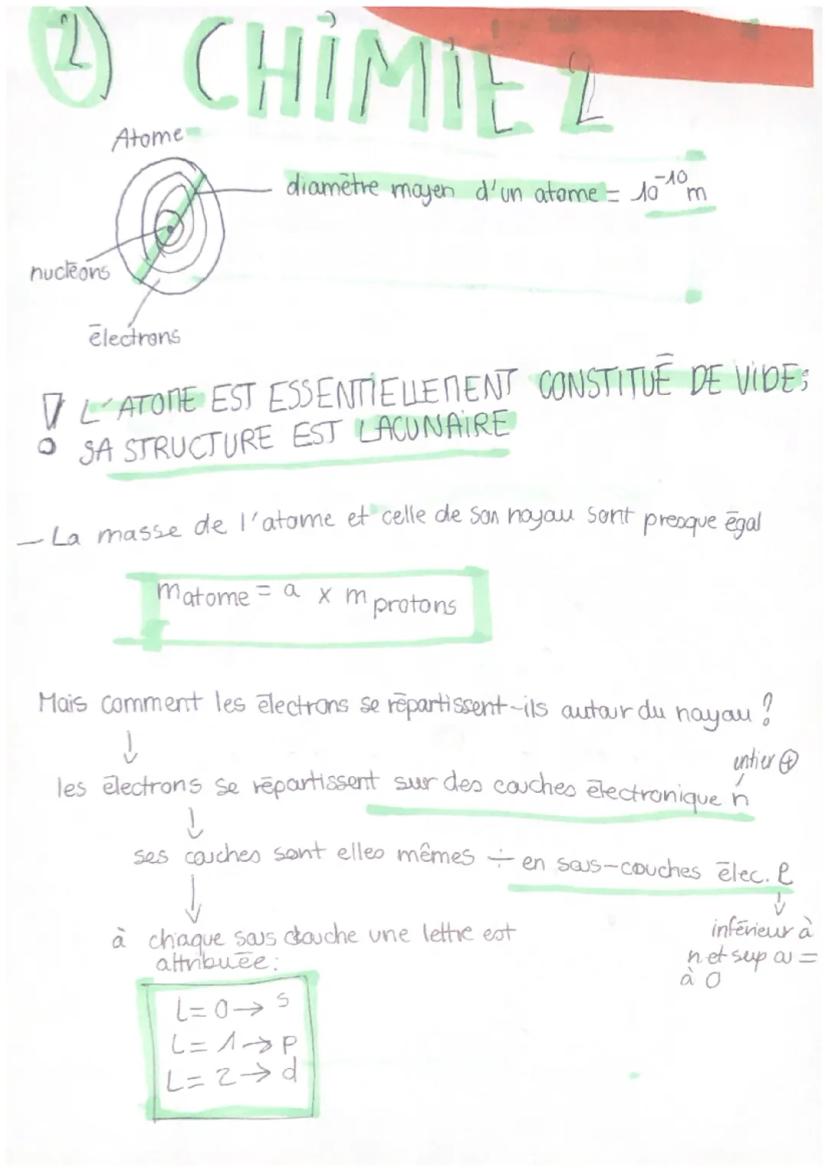 2) CHIMIE 2
Atome
diamètre moyen d'un atome = 10⁻¹⁰ m
nucléons
électrons
! L'ATOME EST ESSENTIELLEMENT CONSTITUÉ DE VIDES
SA STRUCTURE EST LACUNAIRE
- La masse de l'atome et celle de son noyau sont presque égal
m atome = a x m protons
Mais comment les électrons se répartissent-ils autour du noyau ?
↓
entier ⊕
les électrons se répartissent sur des couches électronique n
↓
ses couches sont elles mêmes ÷ en sous-couches élec. l
↓
à chaque sous couche une lettre est
attribuée:
inférieur à
n et sup ou =
à 0
L= 0 → s
L= 1 → p
L= 2 → d